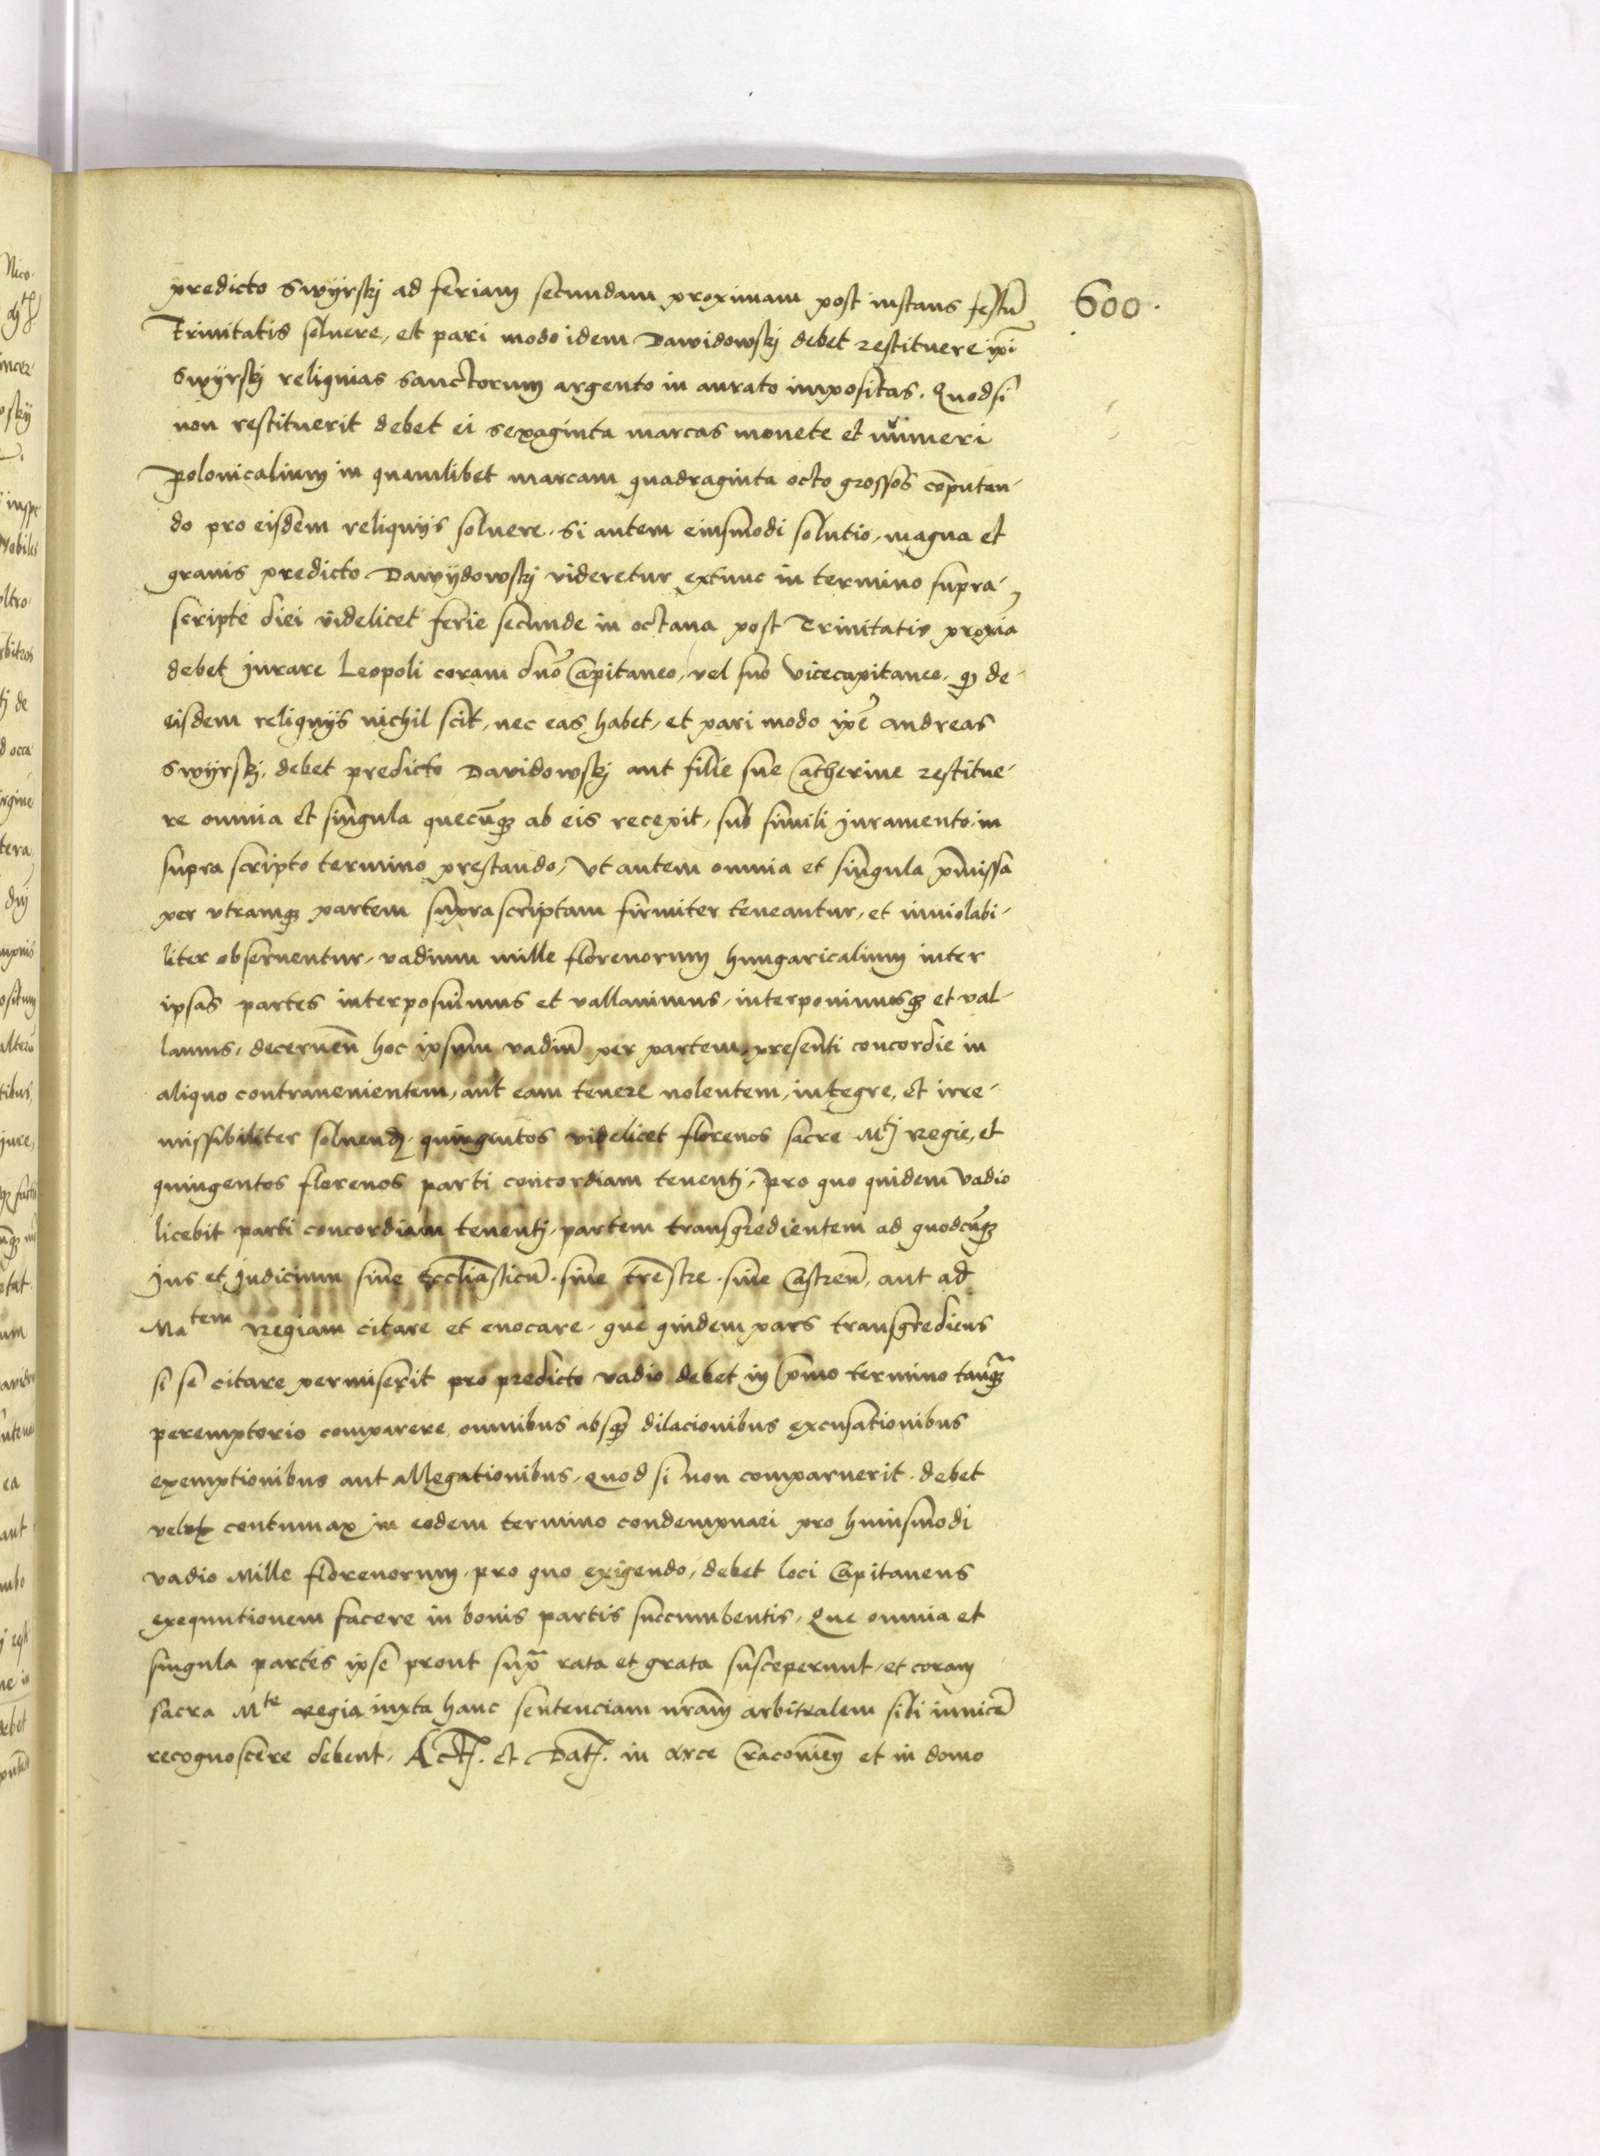 600.
predicto Swyrskj ad feriam secundam proximam post instans festũ
Trinitatis soluere, et pari modo idem Dawidowskj debet restituere ip̃i
Swyrskj reliquias sanctorum argento in aurato impositas. Quodsi
non restituerit debet ei sexaginta marcas monete et numeri
polonicalium in quamlibet marcam quadraginta octo grossos cõputan-
do pro eisdem reliquijs soluere. Si autem eiusmodi solutio, magna et
grauis predicto Dawydowskj videretur extunc in termino supra,
scripte diei videlicet ferie secunde in octaua post Trinitatis proxĩa
debet Jurare Leopoli coram dno Capitaneo, vel suo vicecapitaneo. qʒ de-
eisdem reliquijs nichil scit, nec eas habet, et pari modo ip̃e Andreas
Swyrskj, debet predicto Davidowskj aut filie sue Catherine restitue-
re omnia et singula quecũqʒ ab eis recepit, sub simili juramento in
supra scripto termino prestando, Vt autem omnia et singula p̃missa
per vtramqʒ partem supra scriptam firmiter teneantur, et inuiolabi-
liter obseruentur, vadium mille florenorum hungaricalium inter
ipsas partes interposuimus et vallauimus, interponimusqʒ et val-
lamus, decerneñ hoc ipsum vadiũ per partem presenti concordie in
aliquo contrauenientem, aut eam tenere nolentem, integre, et irre-
missibiliter soluendʒ quingentos videlicet florenos sacre Mtj Regie, et
quingentos florenos parti concordiam tenentj, pro quo quidem vadio
licebit parti concordiam tenentj, partem transgredientem ad quodcũqʒ
Jus et Judicium siue Eccliasticũ. siue trestre. siue Castreñ, aut ad
Matem Regiam citare et euocare, que quidem pars transgrediens
si se citare permiserit pro predicto vadio debet in p̃mo termino tanqʒ
peremptorio comparere, omnibus absqʒ dilacionibus excusationibus
exemptionibus aut allegationibus, Quod si non comparuerit. debet
velut contumax in eodem termino condempnari pro huiusmodi
vadio Mille florenorum, pro quo exigendo, debet loci Capitaneus
exequutionem facere in bonis partis succumbentis, Que omnia et
singula partes ipse prout supra rata et grata susceperunt, et coram
sacra Mte Regia iuxta hanc sentenciam nrãm arbitralem sibi inuicẽ
recognoscere debent, Act. et Dat. in arce Cracouieñ et in domo